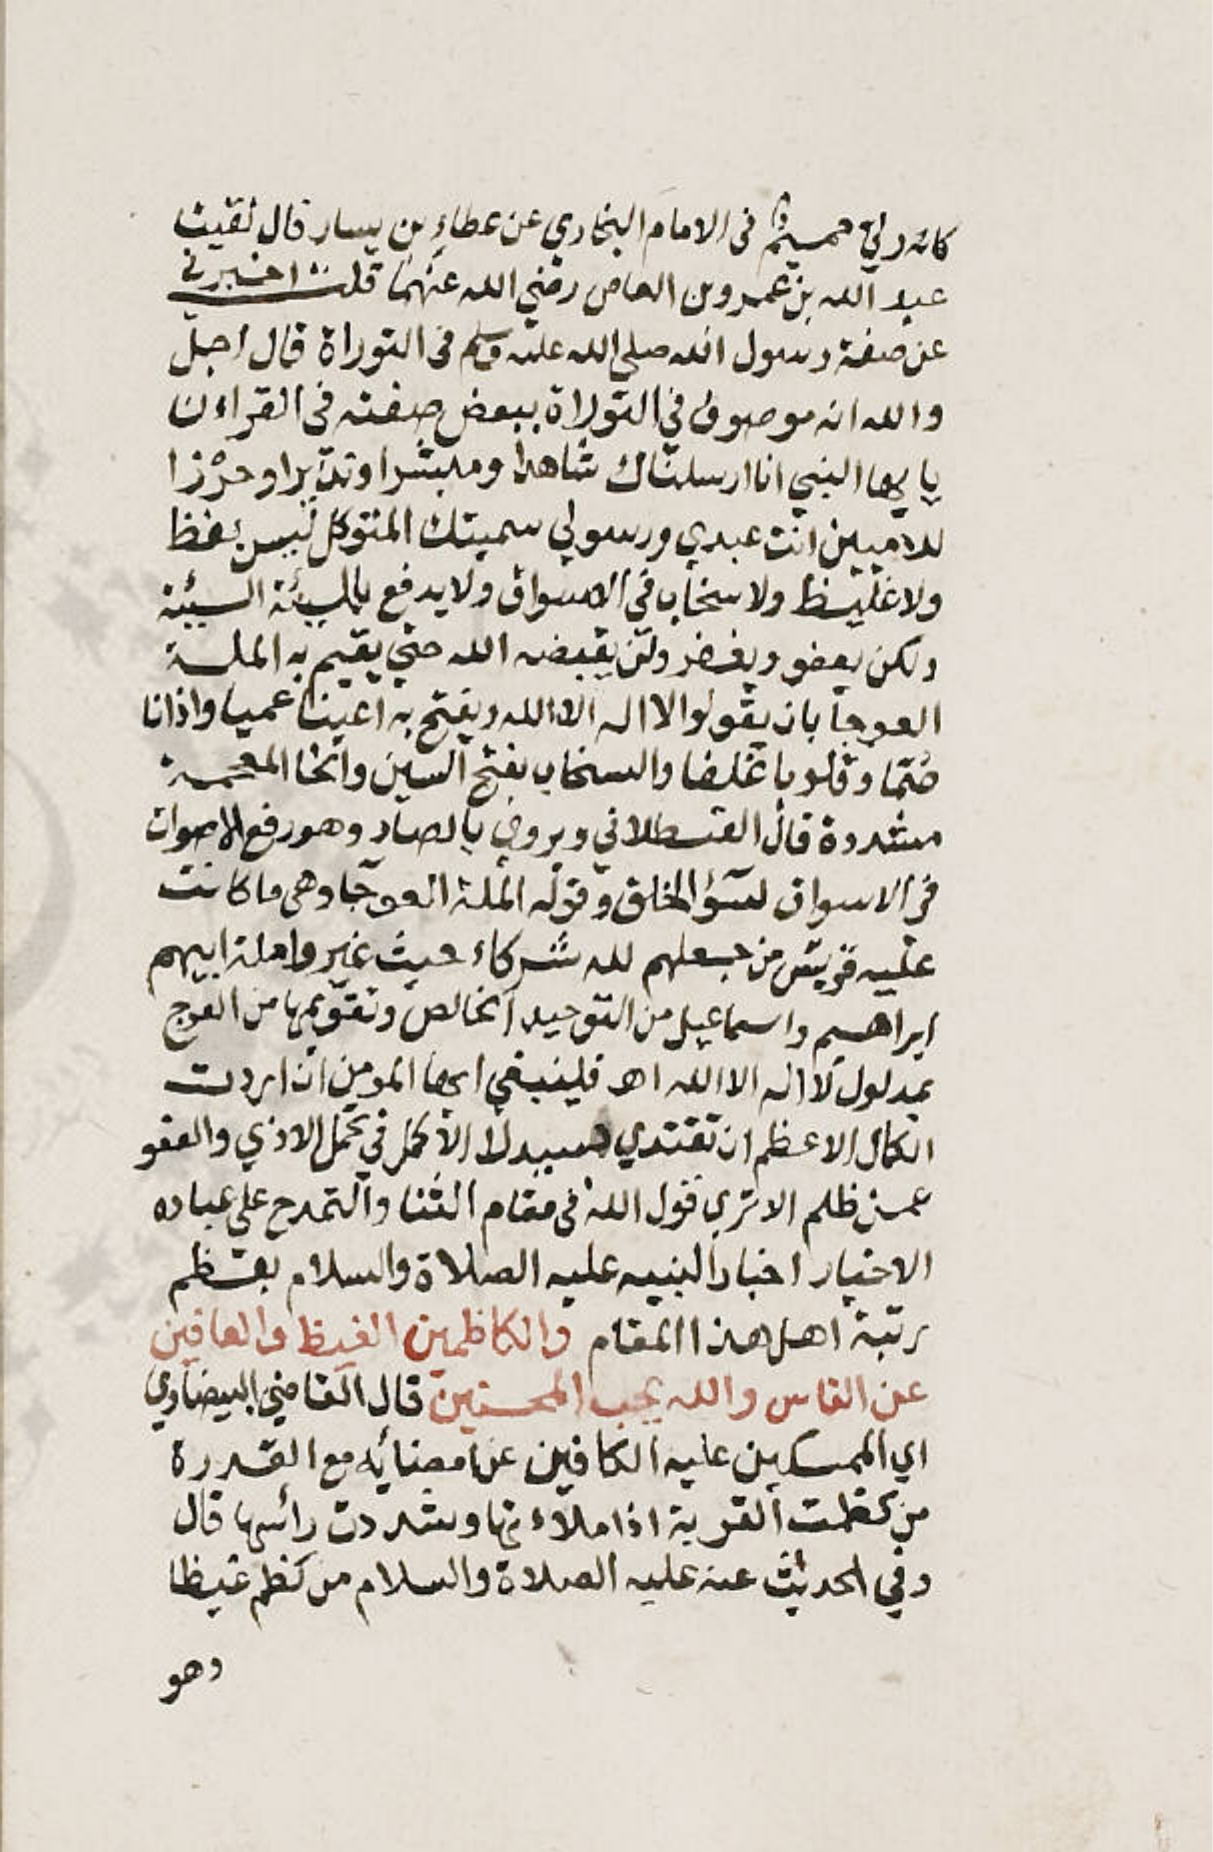 كانه ولي حميم في الامام البخاري عن عطاء بن يسار قال لقيت
عبد الله بن عمرو بن العاص رضي الله عنهما قلت اخبرني
عن صفة رسول الله صلى الله عليه وسلم في التوراة قال اجل
والله انه موصوف في التوراة ببعض صفته في القراءن
يا يها النبي انا ارسلناك شاهدا ومبشرا ونذيرا وحرزا
للاميين انت عبدي ورسولي سميتك المتوكل ليس بفظ
ولا غليظ ولا سخاب في الاسواق ولا يدفع بالسيئة السيئة
ولكن يعفو ويغفر ولن يقبضه الله حتي يقيم به الملة
العوجا بان يقولوا لا اله الا الله ويفتح به اعينا عميا واذانا
صما وقلوبا غلفا والسخاب بفتح السين والخا المعجمة
مشددة قال القسطلاني ويروي بالصاد وهو رفع الاصوات
في الاسواق لسؤ الخلق وقوله الملة العوجا وهي ما كانت
عليه قريش من جعلهم لله شركاء حيث غيروا ملة ابيهم
ابراهيم واسماعيل من التوحيد الخالص وتقويمها من العوج
بمدلول لا اله الا الله اهـ فلينبغي ايها المومن ان اردت
الكمال الاعظم ان تقتدي بسيدك الاكمل في تحمل الاذي والعفو
عمن ظلم الا تري قول الله في مقام الثنا والتمدح علي عباده
الاخيار اخبارا لنبيه عليه الصلاة والسلام بعظم
رتبة اهل هذا المقام والكاظمين الغيظ والعافين
عن الناس والله يحب المحسنين قال القاضي البيضاوي
اي الممسكين عليه الكافين عن امضائه مع القدرة
من كظمت القربة اذا ملاءتها وشددت رائسها قال
وفي الحديث عنه عليه الصلاة والسلام من كظم غيظا
وهو